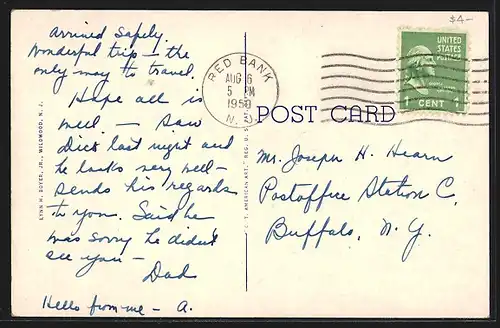 $4-
Arrived Safely.
Wonderful trip - the
only way to travel.
Hope all is
well - Saw
Dick last night and
he looks very well -
sends his regards
to you. Said he
was sorry he didn't
see you -
Dad
Hello from me - A.
LYNN H. BOYER, JR., WILDWOOD, N. J.
C. T. AMERICAN ART
RED BANK
AUG 6
5 PM
1950
N. J.
POST CARD
UNITED
STATES
POSTAGE
1 CENT 1
Mr. Joseph H. Hearn
Postoffice Station C,
Buffalo, N. Y.